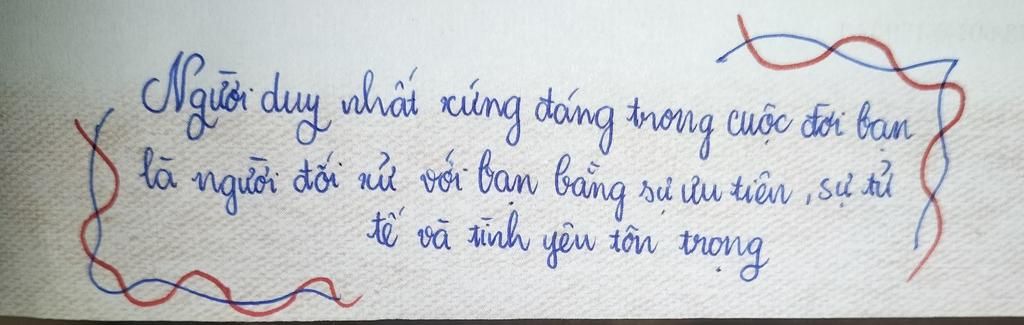 Người duy nhất xứng đáng trong cuộc đời bạn
là người đối xử với bạn bằng sự ưu tiên, sự tử
tế và tình yêu tôn trọng